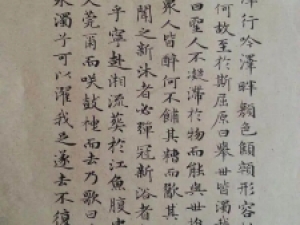 行吟澤畔顏色顦顇形容
何故至於斯屈原曰舉世皆濁我
曰聖人不凝滯於物而能與世推
眾人皆醉何不餔其糟而歠其
聞之新沐者必彈冠新浴者
乎寧赴湘流葬於江魚腹中
人莞爾而咲鼓枻而去乃歌曰
水濁兮可以濯我足遂去不復